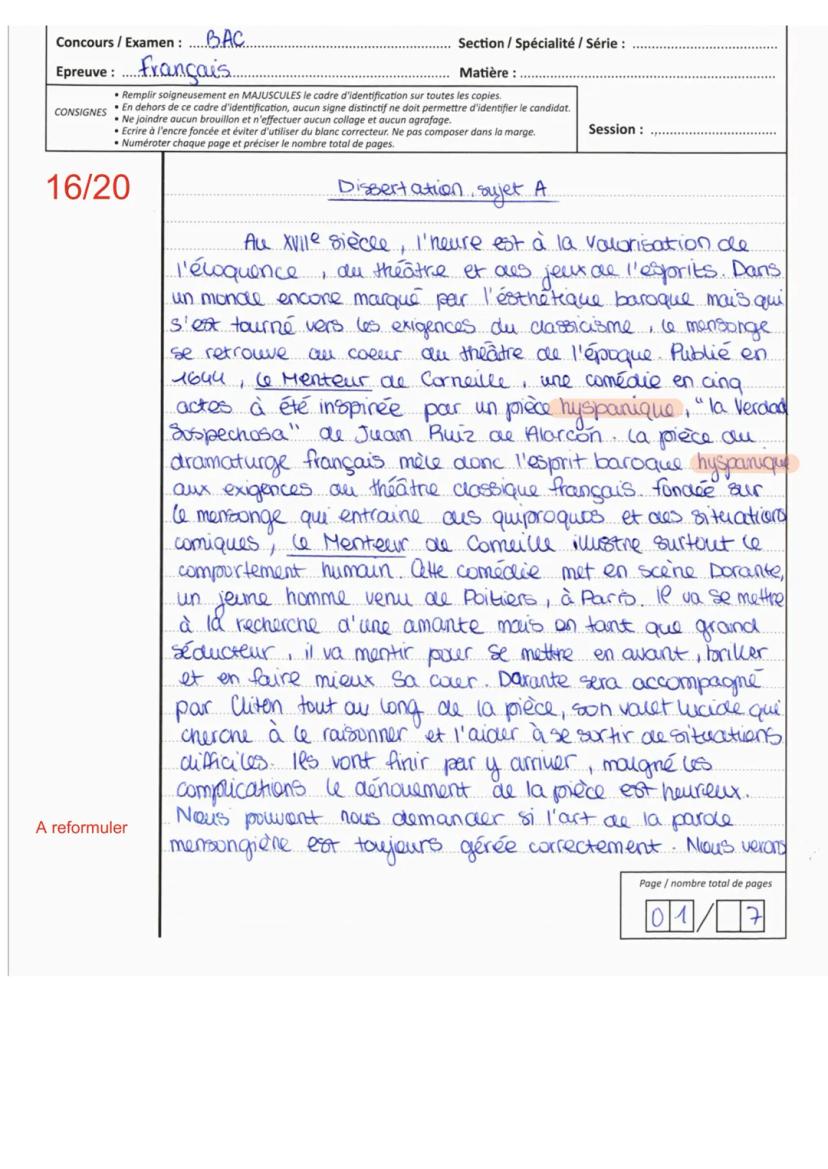 Concours / Examen : BAC Section / Spécialité / Série :
Epreuve : français Matière :
CONSIGNES
• Remplir soigneusement en MAJUSCULES le cadre d'identification sur toutes les copies.
• En dehors de ce cadre d'identification, aucun signe distinctif ne doit permettre d'identifier le candidat.
• Ne joindre aucun brouillon et n'effectuer aucun collage et aucun agrafage.
• Ecrire à l'encre foncée et éviter d'utiliser du blanc correcteur. Ne pas composer dans la marge.
• Numéroter chaque page et préciser le nombre total de pages.
Session :
16/20
Dissertation, sujet A
Au XVIIe siècle, l'heure est à la valorisation de
l'éloquence, du théâtre et des jeux de l'esprits. Dans
un monde encore marqué par l'ésthétique baroque mais qui
s'est tourné vers les exigences du classicisme, le mensonge
se retrouve au coeur du théâtre de l'époque. Publié en
1644, Le Menteur de Corneille, une comédie en cinq
actes à été inspirée par un pièce hyspanique, "la Verdad
Sospechosa" de Juan Ruiz de Alarcón. La pièce du
dramaturge français mêle donc l'esprit baroque hyspanique
aux exigences du théâtre classique français. fondée sur
le mensonge qui entraine des quiproquos et des situations
comiques, Le Menteur de Corneille illustre surtout le
comportement humain. Cette comédie met en scène Dorante,
un jeune homme venu de Poitiers, à Paris. Il va se mettre
à la recherche d'une amante mais en tant que grand
séducteur, il va mentir pour se mettre en avant, briller
et en faire mieux sa cour. Dorante sera accompagné
par Cliton tout au long de la pièce, son valet lucide qui
cherche à le raisonner et l'aider à se sortir de situations
difficiles. Ils vont finir par y arriver, malgré les
complications le dénouement de la pièce est heureux.
Nous pouvont nous demander si l'art de la parole
A reformuler
mensongière est toujours gérée correctement. Nous verons
Page / nombre total de pages
01 / 7